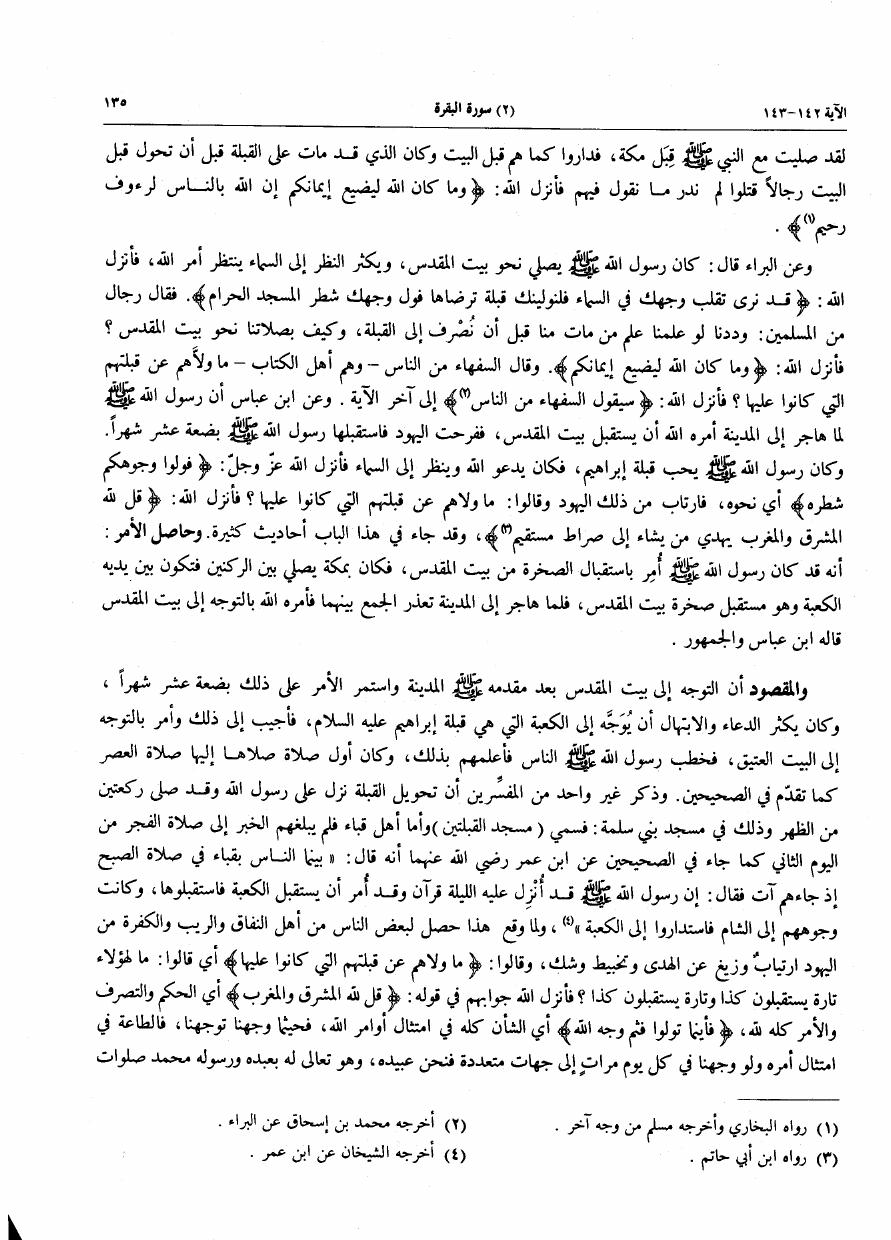 الآية ١٤٢-١٤٣ (٢) سورة البقرة ١٣٥
لقد صليت مع النبي ﷺ قِبَل مكة، فداروا كما هم قبل البيت وكان الذي قـد مات على القبلة قبل أن تحول قبل
البيت رجالاً قتلوا لم ندر مـا نقول فيهم فأنزل الله: ﴿ وما كان الله ليضيع إيمانكم إن الله بالنـاس لرءوف
رحيم(١)﴾ .
وعن البراء قال: كان رسول الله ﷺ يصلي نحو بيت المقدس، ويكثر النظر إلى السماء ينتظر أمر الله، فأنزل
الله: ﴿ قـد نرى تقلب وجهك في السماء فلنولينك قبلة ترضاها فول وجهك شطر المسجد الحرام﴾. فقال رجال
من المسلمين: وددنا لو علمنا علم من مات منا قبل أن نُصْرف إلى القبلة، وكيف بصلاتنا نحو بيت المقدس ؟
فأنزل الله: ﴿وما كان الله ليضيع إيمانكم﴾. وقال السفهاء من الناس – وهم أهل الكتاب – ما ولاَّهم عن قبلتهم
التي كانوا عليها ؟ فأنزل الله: ﴿ سيقول السفهاء من الناس(٢)﴾ إلى آخر الآية . وعن ابن عباس أن رسول الله ﷺ
لما هاجر إلى المدينة أمره الله أن يستقبل بيت المقدس، ففرحت اليهود فاستقبلها رسول الله ﷺ بضعة عشر شهراً.
وكان رسول الله ﷺ يحب قبلة إبراهيم، فكان يدعو الله وينظر إلى السماء فأنزل الله عزّ وجلّ: ﴿ فولوا وجوهكم
شطره﴾ أي نحوه، فارتاب من ذلك اليهود وقالوا: ما ولاهم عن قبلتهم التي كانوا عليها ؟ فأنزل الله: ﴿ قل لله
المشرق والمغرب يهدي من يشاء إلى صراط مستقيم(٣)﴾، وقد جاء في هذا الباب أحاديث كثيرة. وحاصل الأمر :
أنه قد كان رسول الله ﷺ أُمِر باستقبال الصخرة من بيت المقدس، فكان بمكة يصلي بين الركنين فتكون بين يديه
الكعبة وهو مستقبل صخرة بيت المقدس، فلما هاجر إلى المدينة تعذر الجمع بينهما فأمره الله بالتوجه إلى بيت المقدس
قاله ابن عباس والجمهور .
والمقصود أن التوجه إلى بيت المقدس بعد مقدمه ﷺ المدينة واستمر الأمر على ذلك بضعة عشر شهراً ،
وكان يكثر الدعاء والابتهال أن يُوَجَّه إلى الكعبة التي هي قبلة إبراهيم عليه السلام، فأجيب إلى ذلك وأمر بالتوجه
إلى البيت العتيق، فخطب رسول الله ﷺ الناس فأعلمهم بذلك، وكان أول صلاة صلاهـا إليها صلاة العصر
كما تقدّم في الصحيحين. وذكر غير واحد من المفسِّرين أن تحويل القبلة نزل على رسول الله وقـد صلى ركعتين
من الظهر وذلك في مسجد بني سلمة: فسمي ( مسجد القبلتين ) وأما أهل قباء فلم يبلغهم الخبر إلى صلاة الفجر من
اليوم الثاني كما جاء في الصحيحين عن ابن عمر رضي الله عنهما أنه قال: « بينما النـاس بقباء في صلاة الصبح
إذ جاءهم آت فقال: إن رسول الله ﷺ قـد أُنْزِل عليه الليلة قرآن وقـد أُمر أن يستقبل الكعبة فاستقبلوها، وكانت
وجوههم إلى الشام فاستداروا إلى الكعبة »(٤) ، ولما وقع هذا حصل لبعض الناس من أهل النفاق والريب والكفرة من
اليهود ارتيابٌ وزيغ عن الهدى وتخبيط وشك، وقالوا: ﴿ ما ولاهم عن قبلتهم التي كانوا عليها﴾ أي قالوا: ما لهؤلاء
تارة يستقبلون كذا وتارة يستقبلون كذا ؟ فأنزل الله جوابهم في قوله: ﴿ قل لله المشرق والمغرب﴾ أي الحكم والتصرف
والأمر كله لله، ﴿ فأينما تولوا فثم وجه الله﴾ أي الشأن كله في امتثال أوامر الله، فحيثما وجهنا توجهنا، فالطاعة في
امتثال أمره ولو وجهنا في كل يوم مراتٍ إلى جهات متعددة فنحن عبيده، وهو تعالى له بعبده ورسوله محمد صلوات
(١) رواه البخاري وأخرجه مسلم من وجه آخر . (٢) أخرجه محمد بن إسحاق عن البراء .
(٣) رواه ابن أبي حاتم . (٤) أخرجه الشيخان عن ابن عمر .